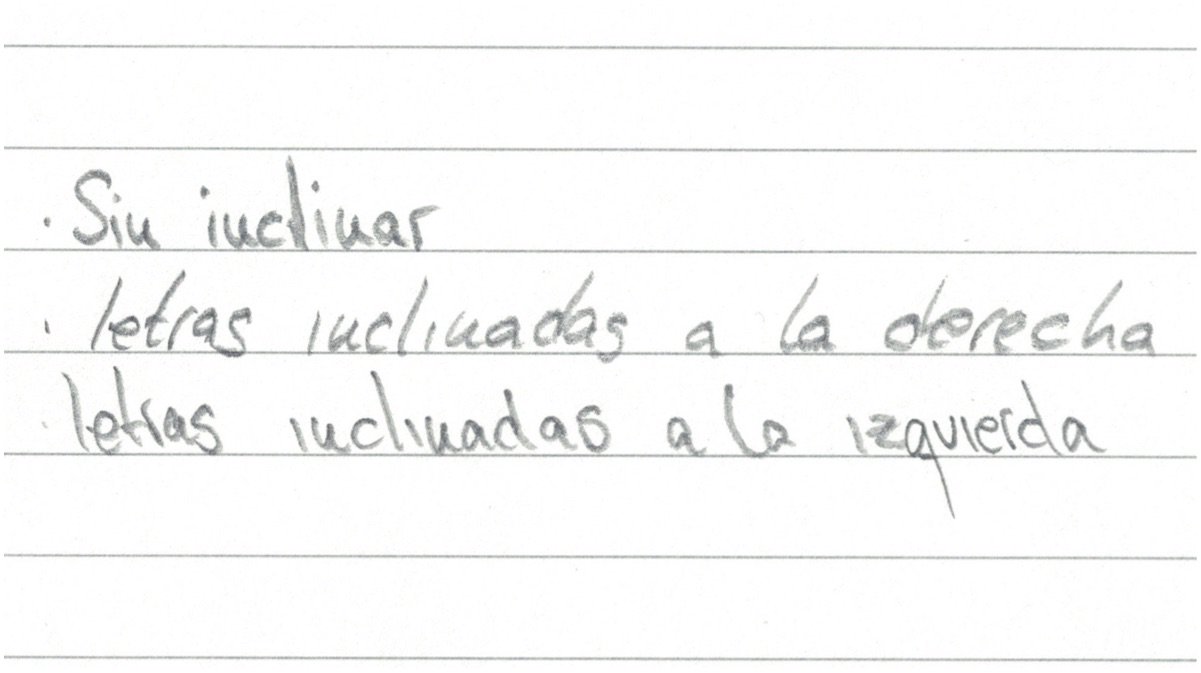 · Sin inclinar
· letras inclinadas a la derecha
· letras inclinadas a la izquierda